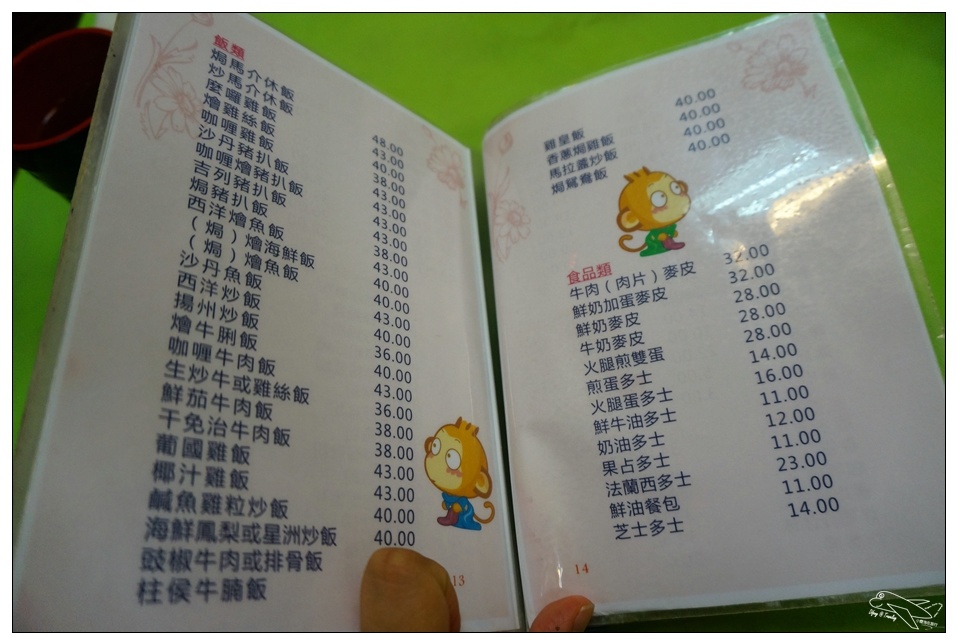 飯類
焗馬介休飯 48.00
炒馬介休飯 43.00
麼囉雞飯 40.00
燴雞絲飯 38.00
咖喱雞飯 43.00
沙丹豬扒飯 43.00
咖喱燴豬扒飯 43.00
吉列豬扒飯 38.00
焗豬扒飯 43.00
西洋燴魚飯 40.00
（焗）燴海鮮飯 40.00
（焗）燴魚飯 43.00
沙丹魚飯 40.00
西洋炒飯 36.00
揚州炒飯 40.00
燴牛脷飯 43.00
咖喱牛肉飯 36.00
生炒牛或雞絲飯 38.00
鮮茄牛肉飯 38.00
干免治牛肉飯 43.00
葡國雞飯 43.00
椰汁雞飯 40.00
鹹魚雞粒炒飯 40.00
海鮮鳳梨或星洲炒飯
豉椒牛肉或排骨飯
柱侯牛腩飯
13
雞皇飯 40.00
香蔥焗雞飯 40.00
馬拉盞炒飯 40.00
焗鴛鴦飯 40.00
食品類
牛肉（肉片）麥皮 32.00
鮮奶加蛋麥皮 32.00
鮮奶麥皮 28.00
牛奶麥皮 28.00
火腿煎雙蛋 28.00
煎蛋多士 14.00
火腿蛋多士 16.00
鮮牛油多士 11.00
奶油多士 12.00
果占多士 11.00
法蘭西多士 23.00
鮮油餐包 11.00
芝士多士 14.00
14